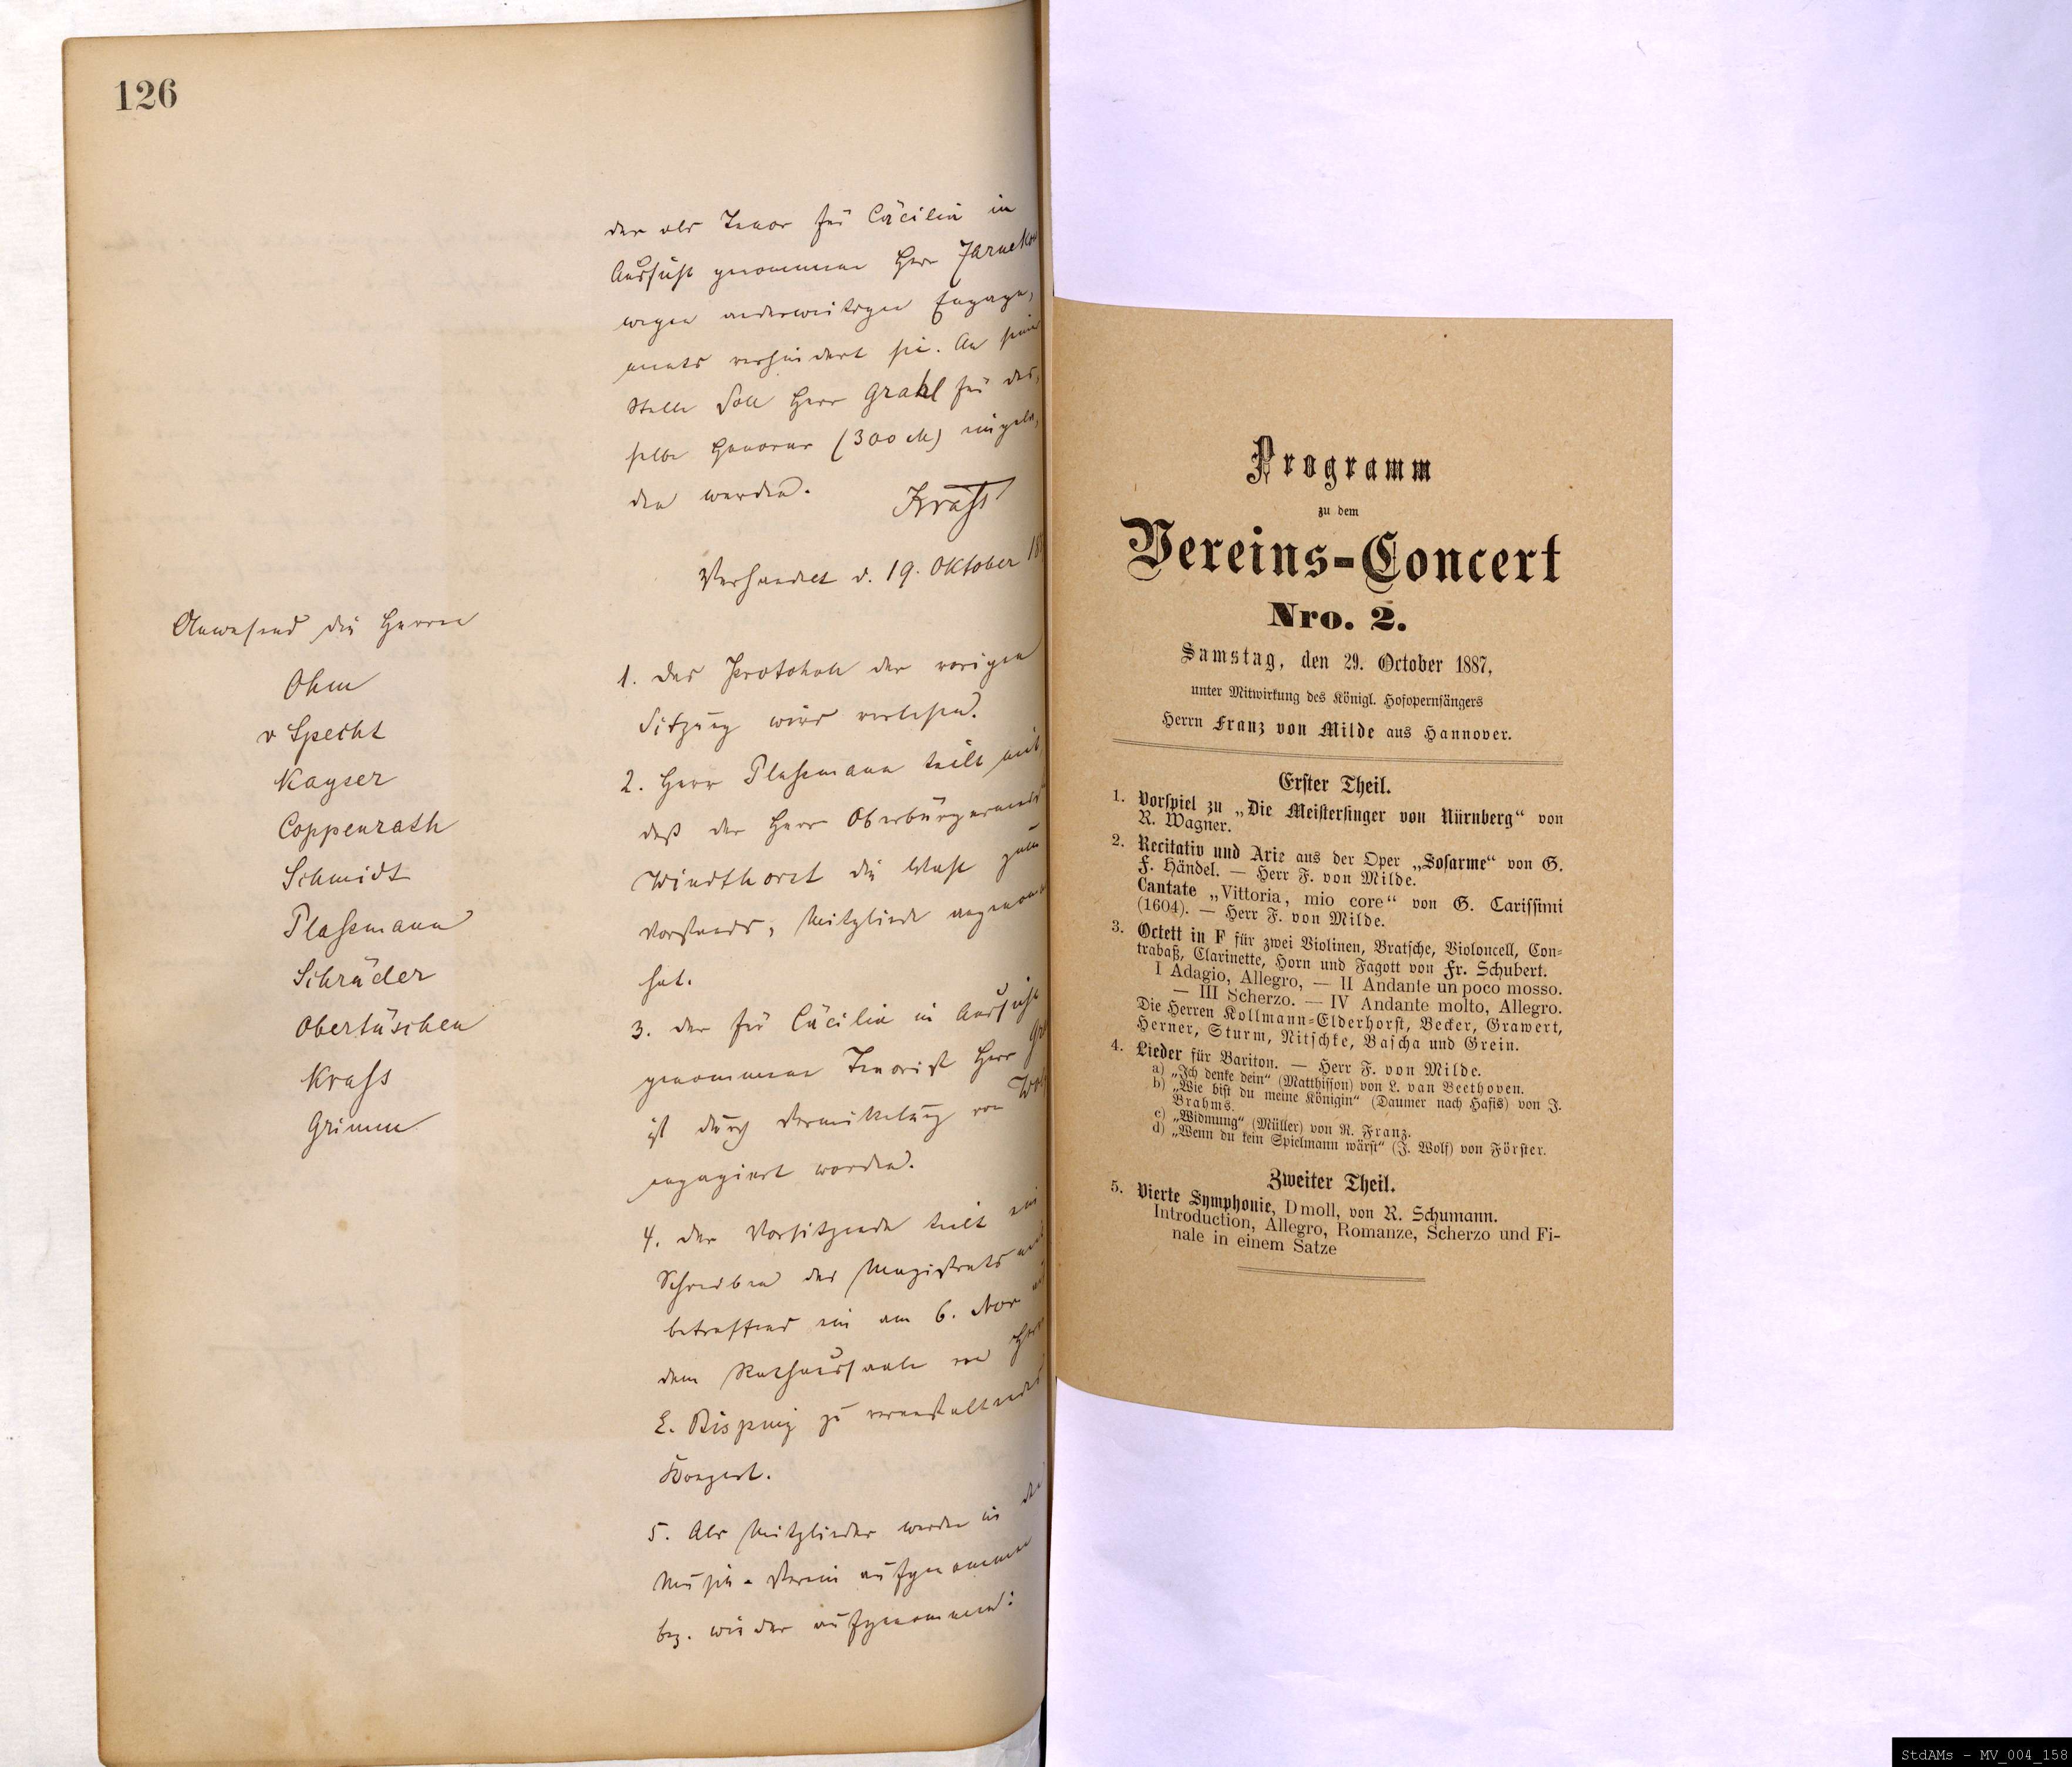 126
der als Tenor für Cäcilia in
Aussicht genommene Herr
wegen anderweitigen Engage-
ments verhindert sei. An seine
Stelle soll Herr Grahl für das-
selbe Honorar (300 M) eingela-
den werden. Krass
Verhandelt d. 19. Oktober
Anwesend die Herren
Ohm
v Specht
Kayser
Coppenrath
Schmidt
Plassmann
Schräder
Obertüschen
Krass
Grimm
1. das Protokoll der vorigen
Sitzung wird verlesen.
2. Herr Plassmann teilt mit,
daß der Herr Oberbürgermeister
Windthorst die Wahl zum
Vorstands-Mitgliede angenommen
hat.
3. der für Cäcilia in Aussicht
genommene Tenorist Herr
ist durch Vermittelung von
engagiert worden.
4. der Vorsitzende teilt ein
Schreiben des Magistrats mit
betreffend ein am 6. Nov
dem Rathaussaale von Herrn
E. Bisping zu veranstaltendes
Konzert.
5. Als Mitglieder werden in den
Musik-Verein aufgenommen
bez. wieder aufgenommen:
Programm
zu dem
Vereins-Concert
Nro. 2.
Samstag, den 29. October 1887,
unter Mitwirkung des Königl. Hofopernsängers
Herrn Franz von Milde aus Hannover.
Erster Theil.
1. Vorspiel zu „Die Meistersinger von Nürnberg“ von
R. Wagner.
2. Recitativ und Arie aus der Oper „Sosarme“ von G.
F. Händel. — Herr F. von Milde.
Cantate „Vittoria, mio core“ von G. Carissimi
(1604). — Herr F. von Milde.
3. Octett in F für zwei Violinen, Bratsche, Violoncell, Con-
trabaß, Clarinette, Horn und Fagott von Fr. Schubert.
I Adagio, Allegro, — II Andante un poco mosso.
— III Scherzo. — IV Andante molto, Allegro.
Die Herren Kollmann-Elderhorst, Becker, Grawert,
Herner, Sturm, Nitschke, Bascha und Grein.
4. Lieder für Bariton. — Herr F. von Milde.
a) „Ich denke dein“ (Matthisson) von L. van Beethoven.
b) „Wie bist du meine Königin“ (Daumer nach Hafis) von J.
Brahms.
c) „Widmung“ (Müller) von R. Franz.
d) „Wenn du kein Spielmann wärst“ (J. Wolf) von Förster.
Zweiter Theil.
5. Vierte Symphonie, Dmoll, von R. Schumann.
Introduction, Allegro, Romanze, Scherzo und Fi-
nale in einem Satze
StdAMs - MV_004_158